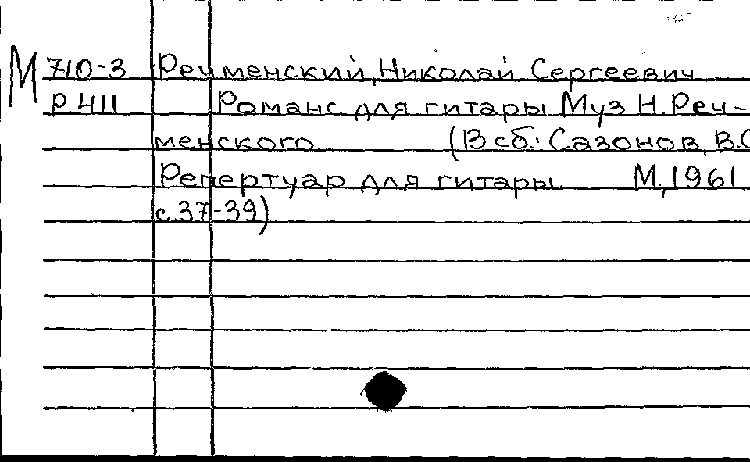 М 710-3 Речменский, Николай Сергеевич
Р 411 Романс для гитары Муз Н. Реч-
менского (В сб.: Сазонов, В.С
Репертуар для гитары М, 1961
с. 37-39)